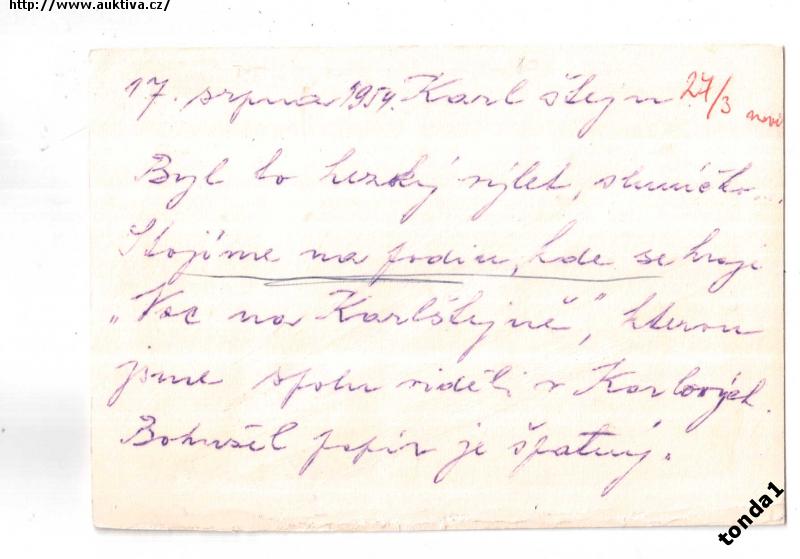 http://www.auktiva.cz/
17. srpna 1954. Karlštejn 24/3 nové
Byl to hezký výlet, sluníčko...
Stojíme na podiu, kde se hrají
„Noc na Karlštejně“, kterou
jsme spolu viděli v Karlových.
Bohužel papír je špatný.
tonda1